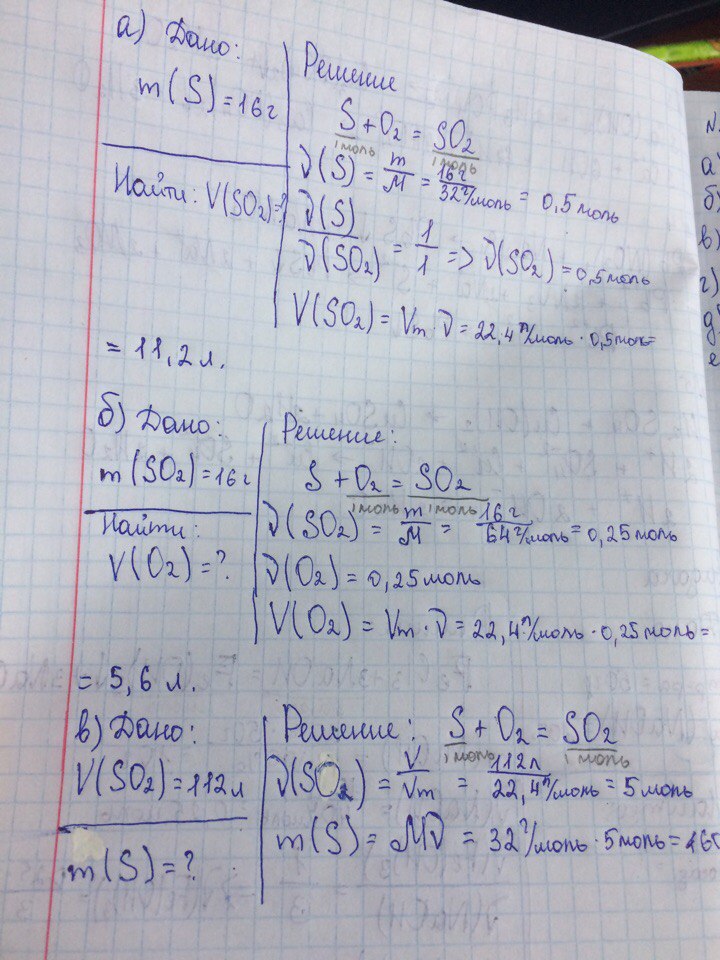 а) Дано:
m(S) = 16 г
Найти: V(SO₂)=?
Решение
S + O₂ = SO₂
1 моль 1 моль
ν(S) = m/M = 16 г / 32 г/моль = 0,5 моль
ν(S)/ν(SO₂) = 1/1 => ν(SO₂) = 0,5 моль
V(SO₂) = Vm · ν = 22,4 л/моль · 0,5 моль =
= 11,2 л.
б) Дано:
m(SO₂) = 16 г
Найти:
V(O₂) = ?
Решение:
S + O₂ = SO₂
1 моль 1 моль
ν(SO₂) = m/M = 16 г / 64 г/моль = 0,25 моль
ν(O₂) = 0,25 моль
V(O₂) = Vm · ν = 22,4 л/моль · 0,25 моль =
= 5,6 л.
в) Дано:
V(SO₂) = 112 л
m(S) = ?
Решение: S + O₂ = SO₂
1 моль 1 моль
ν(SO₂) = V/Vm = 112 л / 22,4 л/моль = 5 моль
m(S) = Mν = 32 г/моль · 5 моль = 160
а)
б)
в)
г)
д)
е